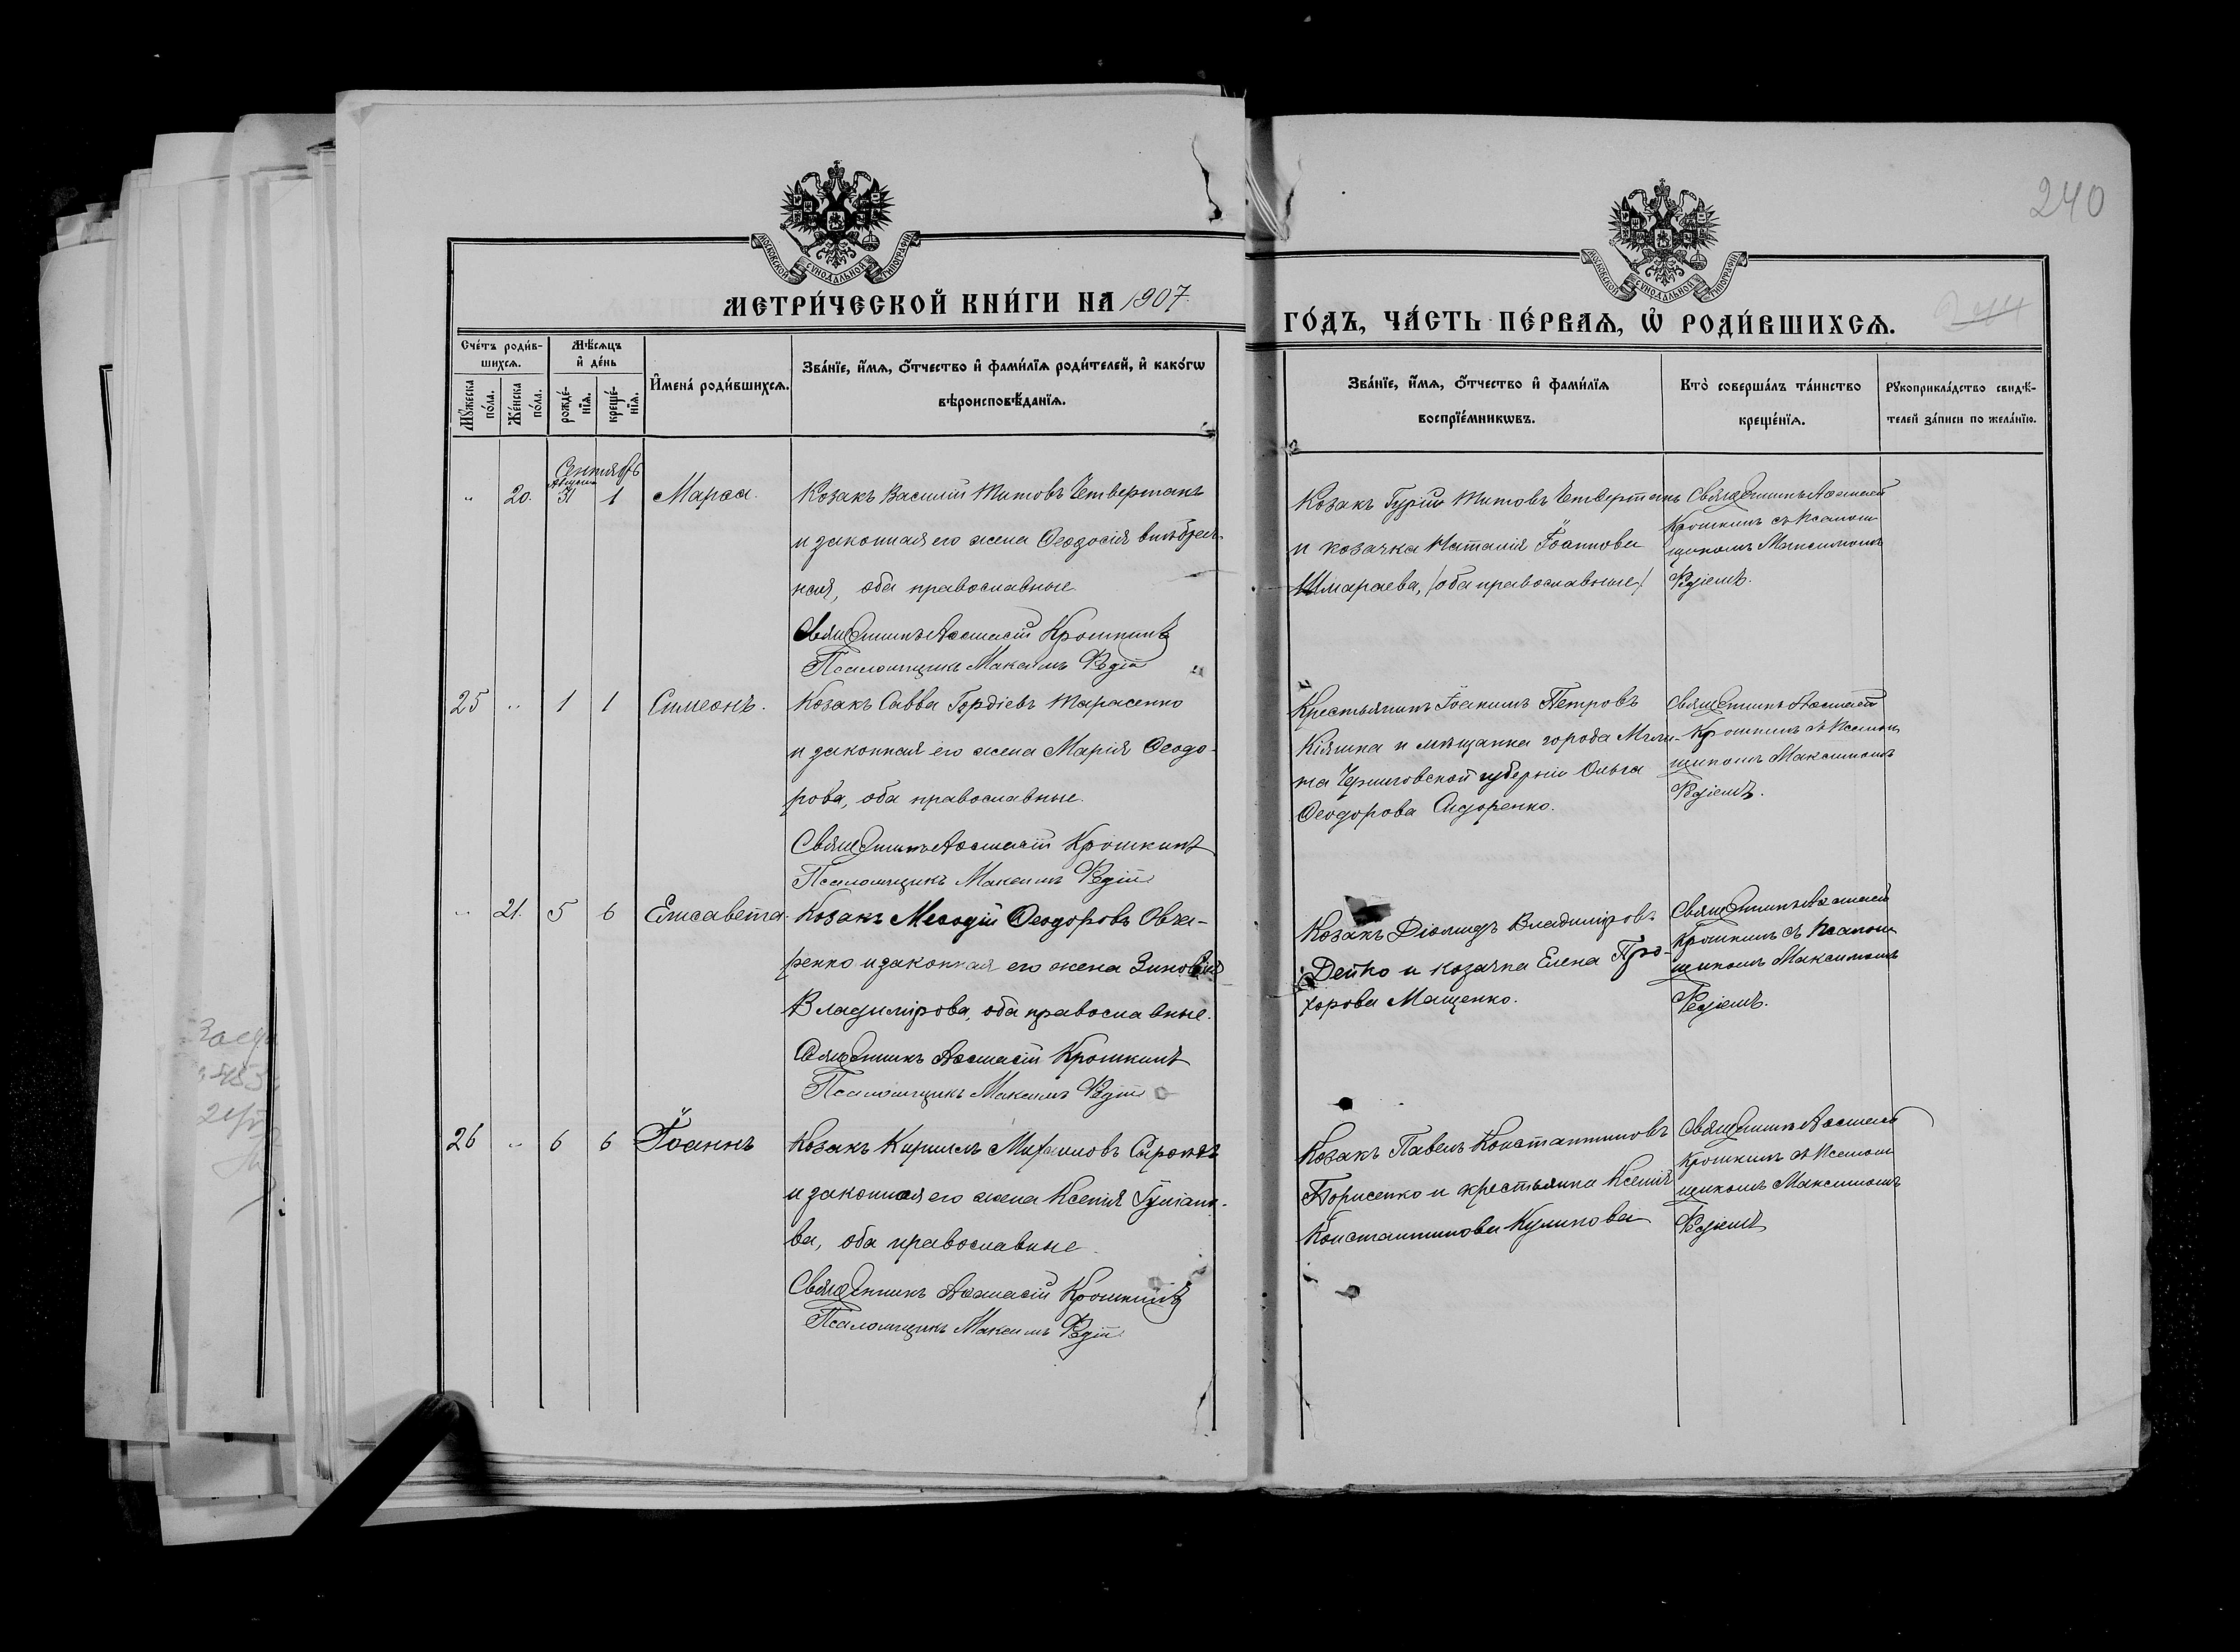 240
МОСКОВСКОЙ СѴНОДАЛЬНОЙ ТИПОГРАФІИ
МОСКОВСКОЙ СѴНОДАЛЬНОЙ ТИПОГРАФІИ
МЕТРИ́ЧЕСКОЙ КНИ́ГИ НА 1907
ГО́ДЪ, ЧА́СТЬ ПЕ́РВАѦ, Ѡ҆ РОДИ́ВШИХСѦ.
244
Сче́тъ роди́в-
шихсѧ.
Мѣ́сѧцъ
и҆ де́нь
Мꙋ́жеска
по́ла.
Же́нска
по́ла.
рожде́-
нїѧ.
креще́-
нїѧ.
И҆мена̀ роди́вшихсѧ.
Зва́нїе, и҆́мѧ, ѻ҆́тчество и҆ фами́лїѧ роди́телей, и҆ како́гѡ
вѣроисповѣ́данїѧ.
Зва́нїе, и҆́мѧ, ѻ҆́тчество и҆ фами́лїѧ
воспрїе́мникѡвъ.
Кто̀ соверша́лъ та́инство
креще́нїѧ.
Рꙋкоприкла́дство свидѣ́-
телей за́писи по жела́нїю.
Сентябрь
Августа
" 20. 31 1 Марѳа.
Козакъ Василій Титовъ Четвертакъ
и законная его жена Ѳеодосія
ная, оба православные
Священникъ Аѳанасій Крошкинъ
Псаломщикъ Максимъ
Козакъ Гурій Титовъ Четвертакъ
и козачка Наталія Іоаннова
Шмараева, /оба православные/
Священникъ Аѳанасій
Крошкинъ съ псалом-
щикомъ Максимомъ
25 " 1 1 Симеонъ.
Козакъ Савва Гордіевъ Тарасенко
и законная его жена Марія Ѳеодо-
рова, оба православные.
Священникъ Аѳанасій Крошкинъ
Псаломщикъ Максимъ
Крестьянинъ Іоакимъ Петровъ
Кіяшка и мѣщанка города Мгли-
на Черниговской губерніи Ольга
Ѳеодорова Сидоренко.
Священникъ Аѳанасій
Крошкинъ съ псалом-
щикомъ Максимомъ
" 21. 5 6 Елисавета.
Козакъ Меѳодій Ѳеодоровъ Овча-
ренко и законная его жена Зиновія
Владимірова, оба православные.
Священникъ Аѳанасій Крошкинъ
Псаломщикъ Максимъ
Козакъ Діомидъ Владиміровъ
Дейко и козачка Елена Про-
хорова Мащенко.
Священникъ Аѳанасій
Крошкинъ съ псалом-
щикомъ Максимомъ
26 " 6 6 Іоаннъ
Козакъ Кириллъ Михаиловъ
и законная его жена Ксенія Іуліано-
ва, оба православные.
Священникъ Аѳанасій Крошкинъ
Псаломщикъ Максимъ
Козакъ Павелъ Константиновъ
Борисенко и крестьянка Ксенія
Константинова Куликова
Священникъ Аѳанасій
Крошкинъ съ псалом-
щикомъ Максимомъ